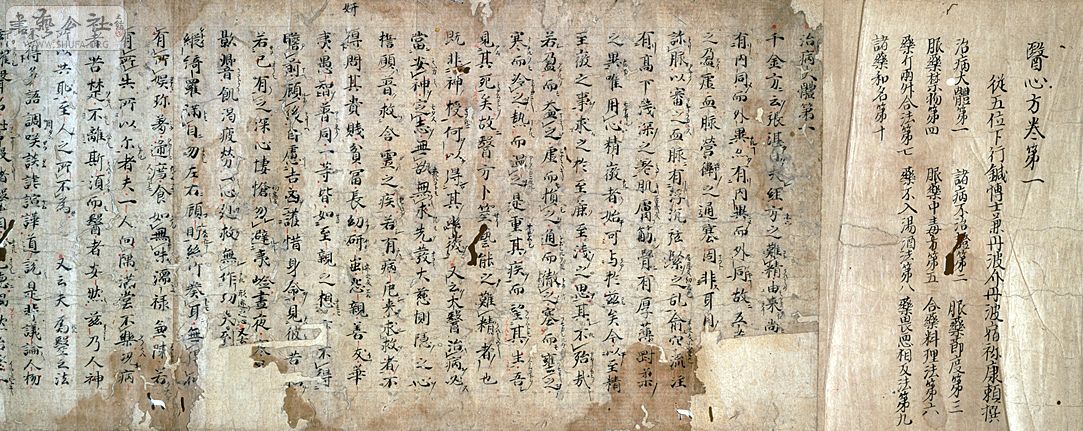 書藝公社
WWW.SHUFA.ORG
醫心方卷第一
從五位下行鍼博士兼丹波介丹波宿祢康頼撰
治病大體第一 諸病不治證第二 服藥節度第三
服藥禁物第四 服藥中毒方第五 合藥料理法第六
藥斤兩升合法第七 藥不入湯酒法第八 藥畏惡相反法第九
諸藥和名第十
治病大體第一
千金方云張湛曰夫經方之難精由來尚
有內同而外異亦有內異而外同故五
之盈虛血脉營衛之通塞固非耳目
診脉以審之血脉有浮沉弦緊之乱俞穴流注
有高下淺深之差肌膚筋骨有厚薄剛柔
之異唯用心精微者始可与於兹矣今以至精
至微之事求之於至麁至淺之思其不殆哉
若盈而益之虛而損之通而徹之塞而壅之
寒而冷之熱而温之是重其疾而望其生吾
見其死矣故醫方卜筮藝能之難精者也
既非神授何以得其幽微 又云大醫治病必
當安神定志無欲無求先發大慈惻隱之心
擔願普救含靈之疾若有病厄來求救者不
得問其貴賤貧富長幼妍蚩怨親善友華
妍
夷愚智普同一等皆如至親之想 不得
瞻前顧後自慮吉凶護惜身命見彼苦
若己有之深心悽愴勿避夷嶮晝夜寒
飢渴疲勞一心赴救無作功夫
綺羅滿目勿左右顧眄絲竹湊耳無得
有所娛珍羞迭薦食如無味醽醁兼陳
有 所以尔者夫一人向隅滿堂不樂況病
人苦楚不離斯須而醫者安然 兹乃人神
所共恥至人之所不為 又云夫為醫之法
不得多語調咲談謔諠譁道說是非議論人物